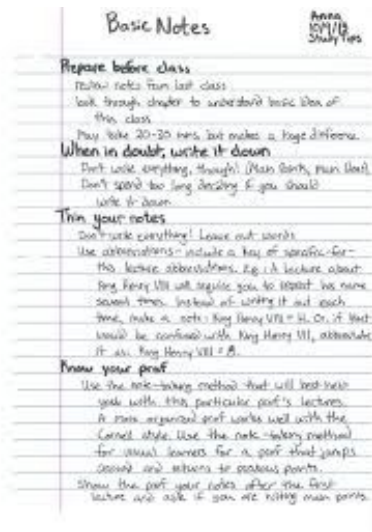 Basic Notes
Anna
10/9/13
Study Tips
Prepare before class
review notes from last class
look through chapter to understand basic idea of
this class
May take 20-30 mins, but makes a huge difference.
When in doubt, write it down
Don't write everything, though! (Main Points, main ideas)
Don't spend too long deciding if you should
write it down
Thin your notes
Don't write everything! Leave out words
Use abbreviations - include a key of specific-for-
this lecture abbreviations. E.g.: A lecture about
King Henry VIII will require you to repeat his name
several times. Instead of writing it out each
time, make a note: King Henry VIII = H. Or, if that
would be confused with King Henry VII, abbreviate
it as: King Henry VIII = 8.
Know your prof
Use the note-taking method that will best help
you with this particular prof's lectures.
A more organized prof works well with the
Cornell style. Use the note-taking method
for visual learners for a prof that jumps
around and returns to previous points.
Show the prof your notes after the first
lecture and ask if you are hitting main points.